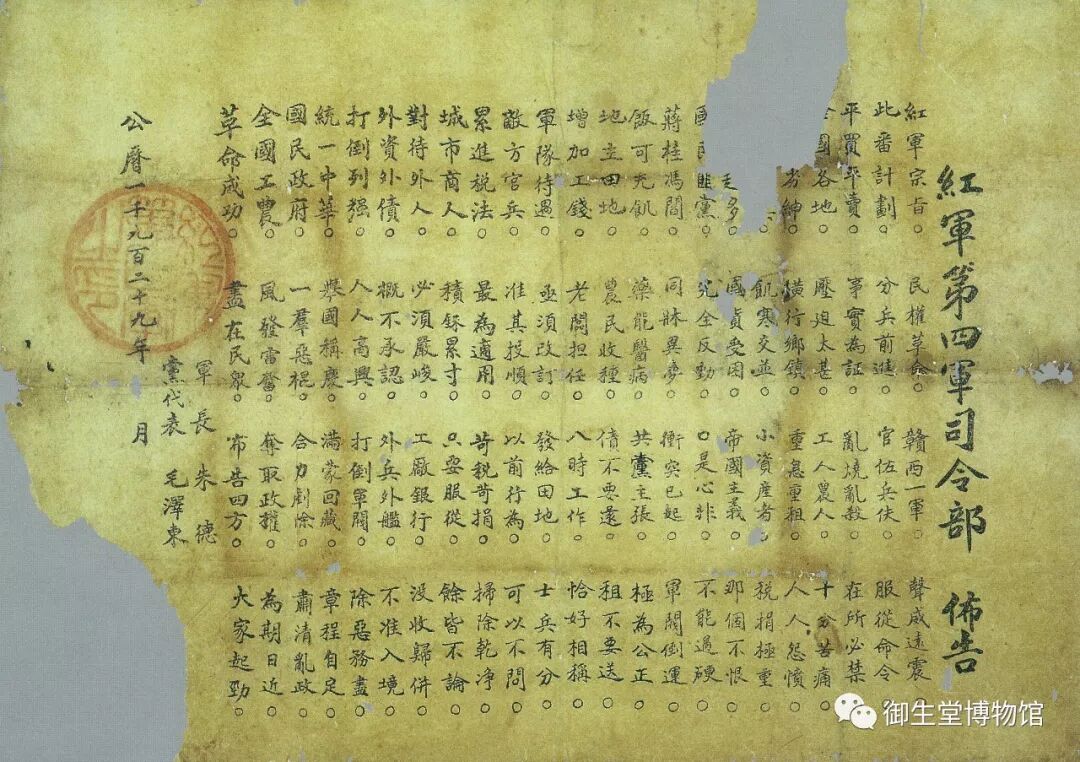 紅軍第四軍司令部 佈告
紅軍宗旨。民權革命。贛西一軍。聲威遠震。
此番計劃。分兵前進。官伍兵伕。服從命令。
平買平賣。事實為証。亂燒亂殺。在所必禁。
全國各地。壓迫太甚。工人農人。十分苦痛。
劣紳。橫行鄉鎮。重息重租。人人怨憤。
。飢寒交並。小資産者。税捐極重。
多。國貨受困。帝國主義。那個不恨。
國匪黨。完全反動。口是心非。不能過硬。
蔣桂馮閻。同牀異夢。衝突已起。軍閥倒運。
飯可充飢。藥能醫病。共黨主張。極為公正。
地主田地。農民收種。債不要還。租不要送。
增加工錢。老闆担任。八時工作。恰好相稱。
軍隊待遇。亟須改訂。發給田地。士兵有分。
敵方官兵。准其投順。以前行為。可以不問。
累進税法。最為適用。苛税苛捐。掃除乾净。
城市商人。積銖累寸。只要服從。餘皆不論。
對待外人。必須嚴峻。工厰銀行。没收歸併。
外資外債。概不承認。外兵外艦。不准入境。
打倒列强。人人高興。打倒軍閥。除惡務盡。
統一中華。舉國稱慶。滿蒙回藏。章程自定。
國民政府。一羣惡棍。合力剷除。肅清亂政。
全國工農。風發雷奮。奪取政權。為期日近。
革命成功。盡在民衆。布告四方。大家起勁。
軍長 朱德
黨代表 毛澤東
公曆一千九百二十九年 月
御生堂博物馆